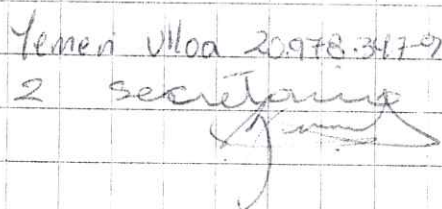 Yemen Ulloa 20.978.347-9
2 secretaria